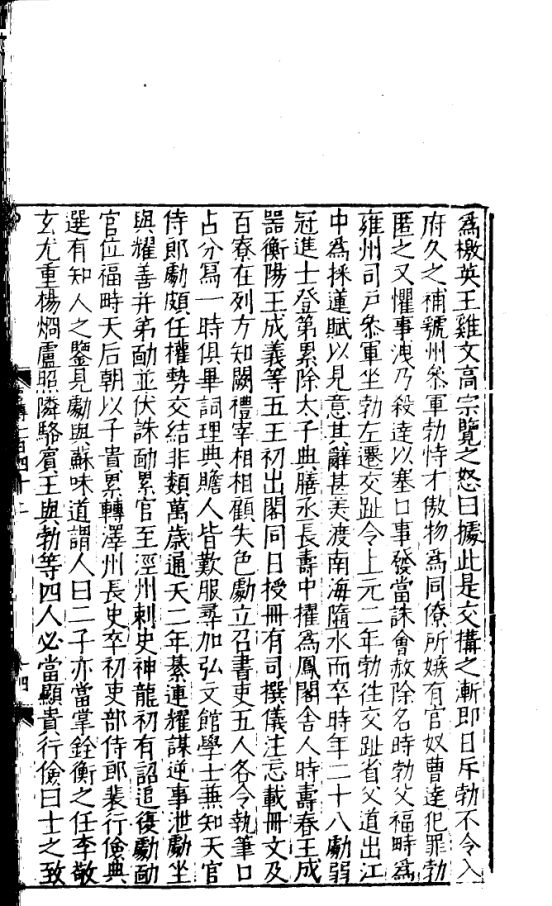 爲檄英王雞文高宗覽之怒曰據此是交搆之漸即日斥勃不令入
府久之補虢州叅軍勃恃才傲物爲同僚所嫉有官奴曹達犯罪勃
匿之又懼事洩乃殺達以塞口事發當誅會赦除名時勃父福畤爲
雍州司戸叅軍坐勃左遷交趾令上元二年勃往交趾省父道出江
中爲採蓮賦以見意其辭甚美渡南海隨水而卒時年二十八勮弱
冠進士登第累除太子典膳丞長壽中擢爲鳳閣舍人時壽春王成
器衡陽王成義等五王初出閣同日授冊有司撰儀注忘載冊文及
百寮在列方知闕禮宰相相顧失色勮立召書吏五人各令執筆口
占分寫一時俱畢詞理典贍人皆歎服尋加弘文館學士兼知天官
侍郎勮頗任權勢交結非類萬歳通天二年綦連耀謀逆事泄勮坐
與耀善并弟勔並伏誅勔累官至涇州刺史神龍初有詔追復勮勔
官位福畤天后朝以子貴累轉澤州長史卒初吏部侍郎裴行儉典
選有知人之鑒見勮與蘇味道謂人曰二子亦當掌銓衡之任李敬
玄尤重楊烱盧照隣駱賓王與勃等四人必當顯貴行儉曰士之致
傳一百四十